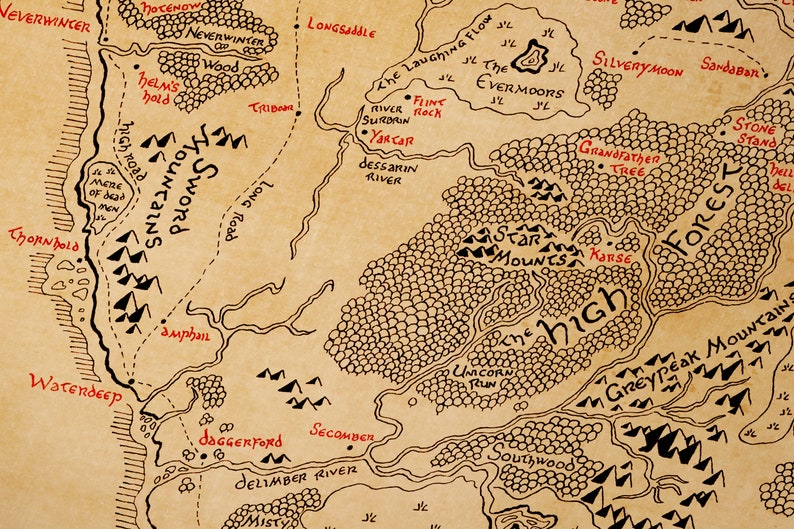 Hotenow
Neverwinter
Longsaddle
Neverwinter
Wood
Helm's
Hold
Triboar
The Laughing Flow
The
Evermoors
Silverymoon
Sandabar
River
Surbrin
Flint
Rock
Yartar
Dessarin
River
Stone
Stand
Grandfather
Tree
High Road
Sword
Mountains
Mere
of Dead
Men
Long Road
Thornhold
Star
Mounts
Karse
The High
Forest
Amphail
Unicorn
Run
Greypeak Mountains
Waterdeep
Daggerford
Secomber
Delimber River
Southwood
Misty